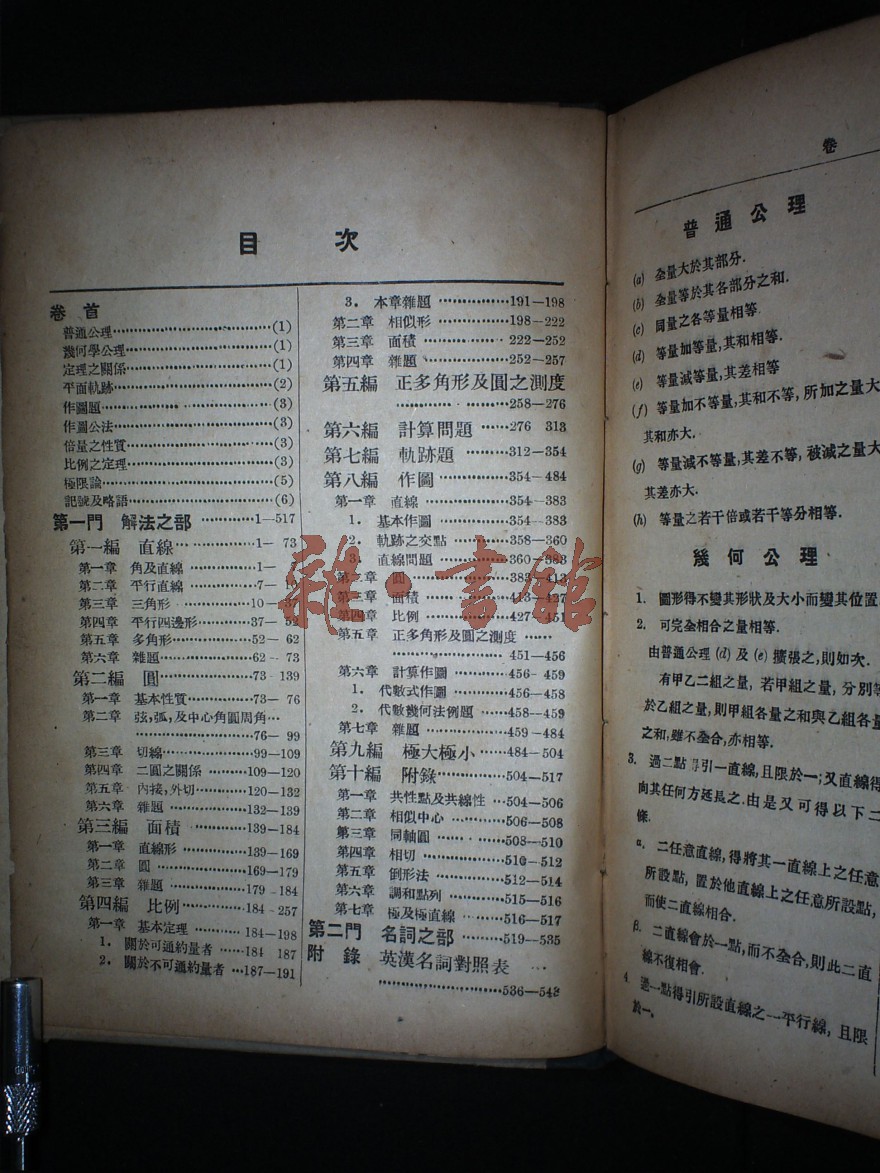 目 次
卷 首
普通公理……(1)
幾何學公理……(1)
定理之關係……(1)
平面軌跡……(2)
作圖題……(3)
作圖公法……(3)
倍量之性質……(3)
比例之定理……(3)
極限論……(5)
記號及略語……(6)
第一門 解法之部……1—517
第一編 直線……1— 73
第一章 角及直線……1—
第二章 平行直線……7—
第三章 三角形……10—37
第四章 平行四邊形……37—
第五章 多角形……52— 62
第六章 雜題……62— 73
第二編 圓……73— 139
第一章 基本性質……73— 76
第二章 弦,弧,及中心角圓周角…
……76— 99
第三章 切線……99—109
第四章 二圓之關係……109—120
第五章 內接,外切……120—132
第六章 雜題……132—139
第三編 面積……139—184
第一章 直線形……139—169
第二章 圓……169—179
第三章 雜題……179—184
第四編 比例……184—257
第一章 基本定理……184—198
1. 關於可通約量者……184 187
2. 關於不可通約量者…187—191
3. 本章雜題……191—198
第二章 相似形……198—222
第三章 面積……222—252
第四章 雜題……252—257
第五編 正多角形及圓之測度
……258—276
第六編 計算問題……276 313
第七編 軌跡題……312—354
第八編 作圖……354—484
第一章 直線……354—383
1. 基本作圖……354—383
2. 軌跡之交點……358—360
3. 直線問題……360—383
第二章 圓……383—413
第三章 面積……413—427
第四章 比例……427—451
第五章 正多角形及圓之測度……
……451—456
第六章 計算作圖……456—459
1. 代數式作圖……456—458
2. 代數幾何法例題……458—459
第七章 雜題……459—484
第九編 極大極小……484—504
第十編 附錄……504—517
第一章 共性點及共線性…504—506
第二章 相似中心……506—508
第三章 同軸圓……508—510
第四章 相切……510—512
第五章 倒形法……512—514
第六章 調和點列……515—516
第七章 極及極直線……516—517
第二門 名詞之部……519—535
附 錄 英漢名詞對照表…
……536—543
雜·書館
卷
普通公理
(a) 全量大於其部分.
(b) 全量等於其各部分之和.
(c) 同量之各等量相等.
(d) 等量加等量,其和相等.
(e) 等量減等量,其差相等
(f) 等量加不等量,其和不等,所加之量大
其和亦大.
(g) 等量減不等量,其差不等,被減之量大
其差亦大.
(h) 等量之若干倍或若干等分相等.
幾何公理
1. 圖形得不變其形狀及大小而變其位置
2. 可完全相合之量相等.
由普通公理 (d) 及 (e) 擴張之,則如次.
有甲乙二組之量,若甲組之量,分別等
於乙組之量,則甲組各量之和與乙組各量
之和,雖不全合,亦相等.
3. 過二點得引一直線,且限於一;又直線得
向其任何方延長之.由是又可得以下二
條.
α. 二任意直線,得將其一直線上之任意
所設點,置於他直線上之任意所設點,
而使二直線相合.
β. 二直線會於一點,而不全合,則此二直
線不復相會.
4. 過一點得引所設直線之一平行線,且限
於一.